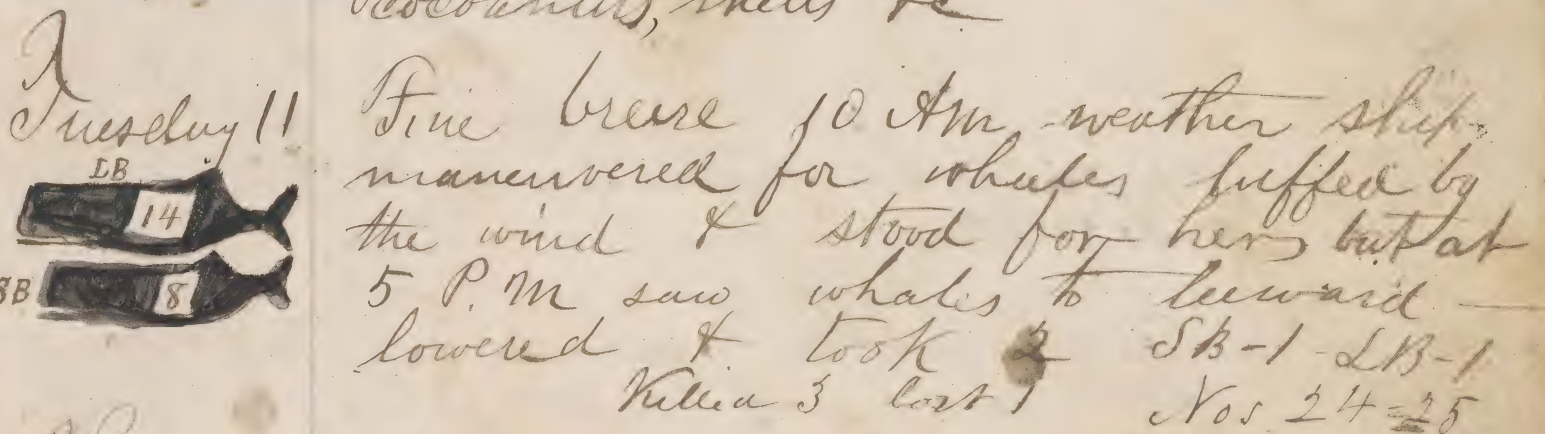 cocoanuts, shells &c
Tuesday 11
LB
14
SB
8
Fine breeze 10 AM, weather ship
maneuvered for whales luffed by
the wind & stood for her, but at
5 P.M saw whales to leeward —
lowered & took 2 SB-1 LB-1
Killed 3 lost 1 Nos 24=25